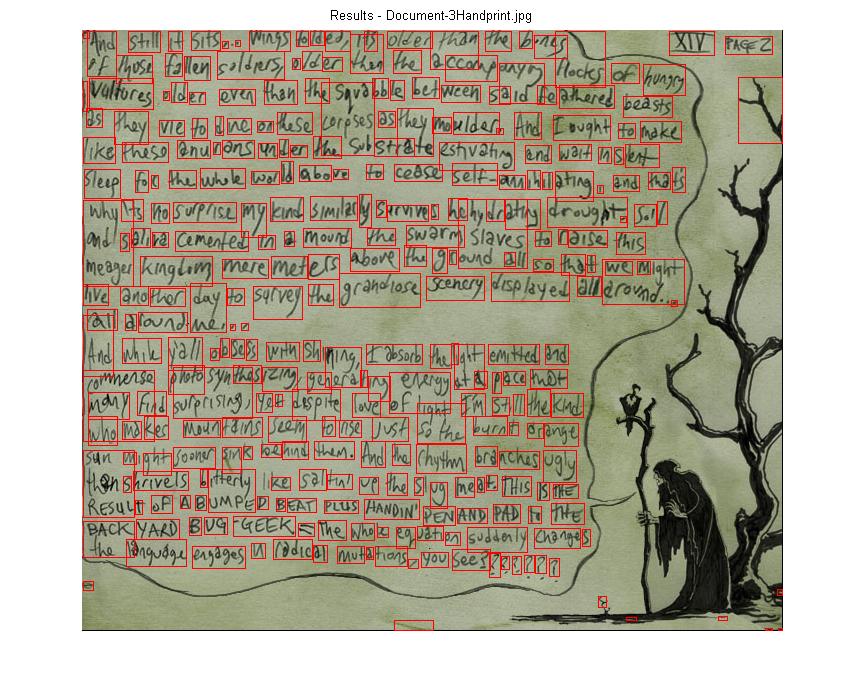 Results - Document-3Handprint.jpg
XIV PAGE 2
And still it sits... wings folded, it's older than the bones
of those fallen soldiers, older than the accompanying flocks of hungry
vultures older even than the squabble between said feathered beasts
as they vie to dine on these corpses as they moulder. And I ought to make
like these anurans under the substrate estivating and wait in silent
sleep for the whole world above to cease self-annihilating, and that's
why it's no surprise my kind similarly survives hehydrating drought. Soil
and saliva cemented in a mound the swarm slaves to raise this
meager kingdom mere meters above the ground all so that we might
live another day to survey the grandiose scenery displayed all around...
(all around me...
And while y'all obsess with shining, I absorb the light emitted and
commense photosynthesizing, generating energy at a place that
many find surprising, yet despite love of light I'm still the kind
who makes mountains seem to rise just so the burnt orange
sun might sooner sink behind them. And the rhythm branches ugly
than shrivels bitterly like saltin' up the slug meat. THIS IS THE
RESULT OF A BUMPED BEAT PLUS HANDIN' PEN AND PAD to THE
BACK YARD BUG GEEK = The whole equation suddenly changes
the language engages in radical mutations, you see??????